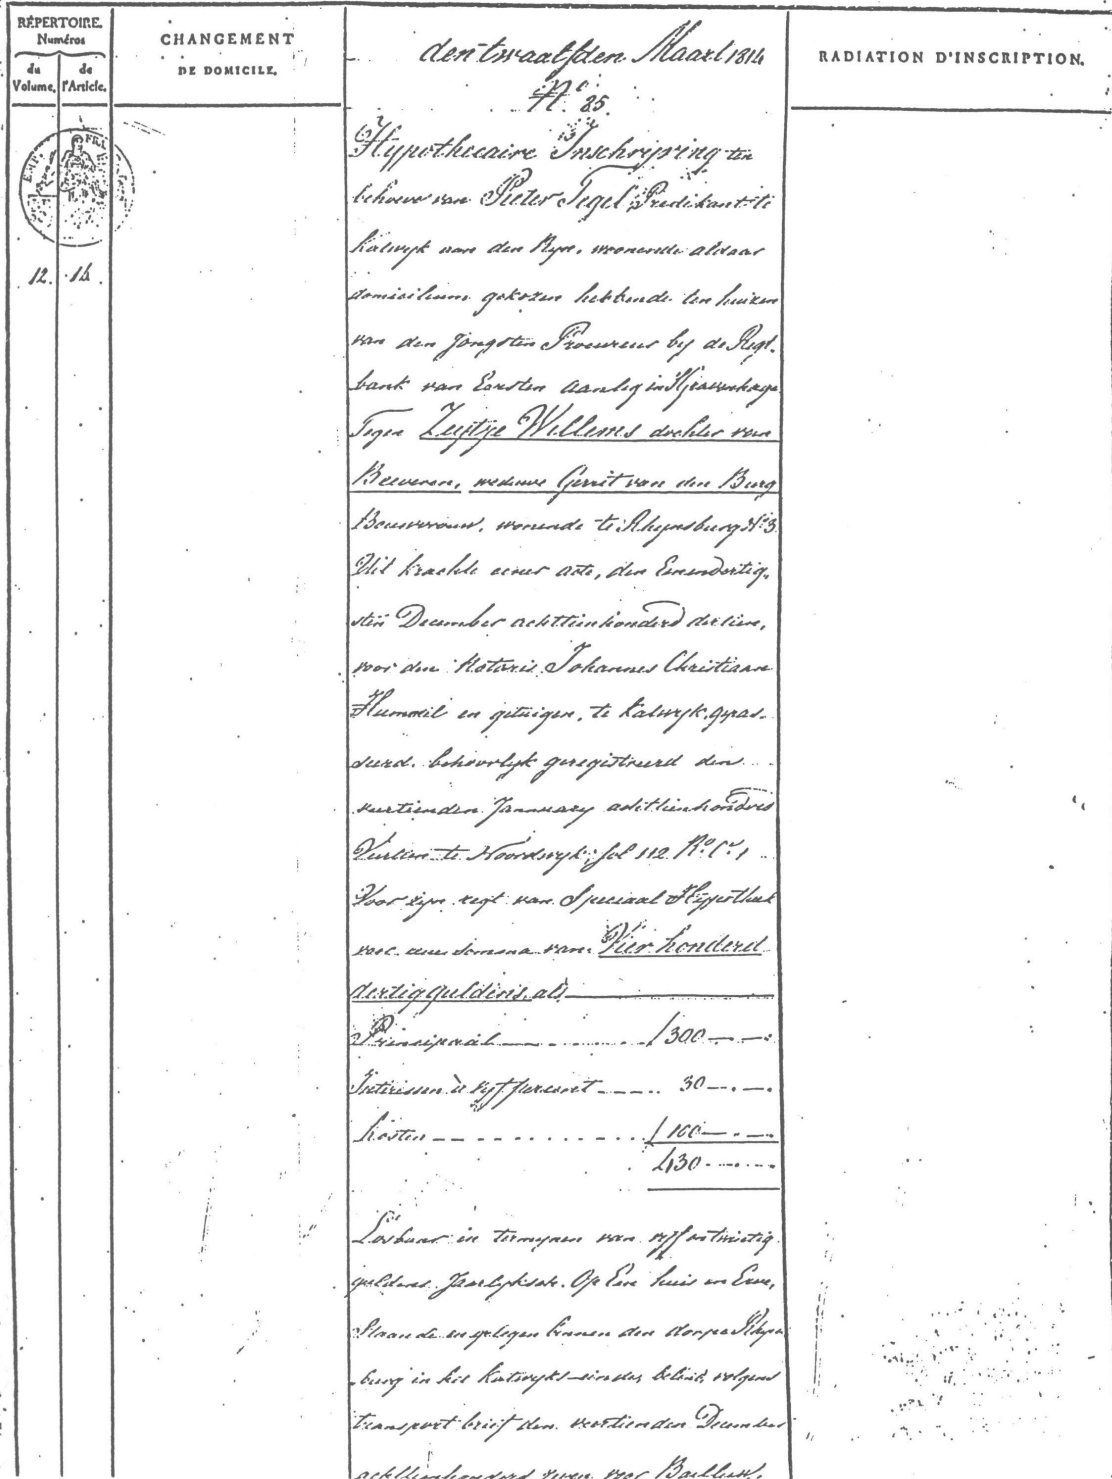 RÉPERTOIRE.
Numéros
du Volume.
de l'Article.
CHANGEMENT
DE DOMICILE.
RADIATION D'INSCRIPTION.
12. 14.
den twaalfden Maart 1814
N.o 85.
Hypothecaire Inschrijving ten
behoeve van Pieter Tegel Predikant te
Katwyk aan den Ryn, woonende aldaar
domicilium gekozen hebbende ten huizen
van den Jongsten Procureur by de Regt.
bank van Eersten Aanleg in 'sGravenhage
Tegen Zeijtje Willems dochter van
Beeveren, weduwe Gerrit van den Burg
Bouwvrouw, wonende te Rhynsburg N.o 3.
Uit krachte eener acte, den Eenendertig-
sten December achttienhonderd dertien,
voor den Notaris Johannes Christiaan
Hummel en getuigen, te Katwyk gepas-
seerd. behoorlyk geregistreerd den
veertienden January achttienhonderd
Veertien te Noordwyk; fol 112 R.o C.s 1
Voor zyn regt van Speciaal Hypotheek
voor eene somma van Vier honderd
dertig guldens, als
Principaal 300
Interessen à vyf percent 30
kosten 100
430
Losbaar in termynen van vyf en twintig
guldens Jaarlyks. Op Een huis en Erve,
Staande en gelegen binnen den dorpe Rhyns
burg in het Katwyks-einde, belend, volgens
transport brief den veertienden December
achttienhonderd zeven voor Bailluw,